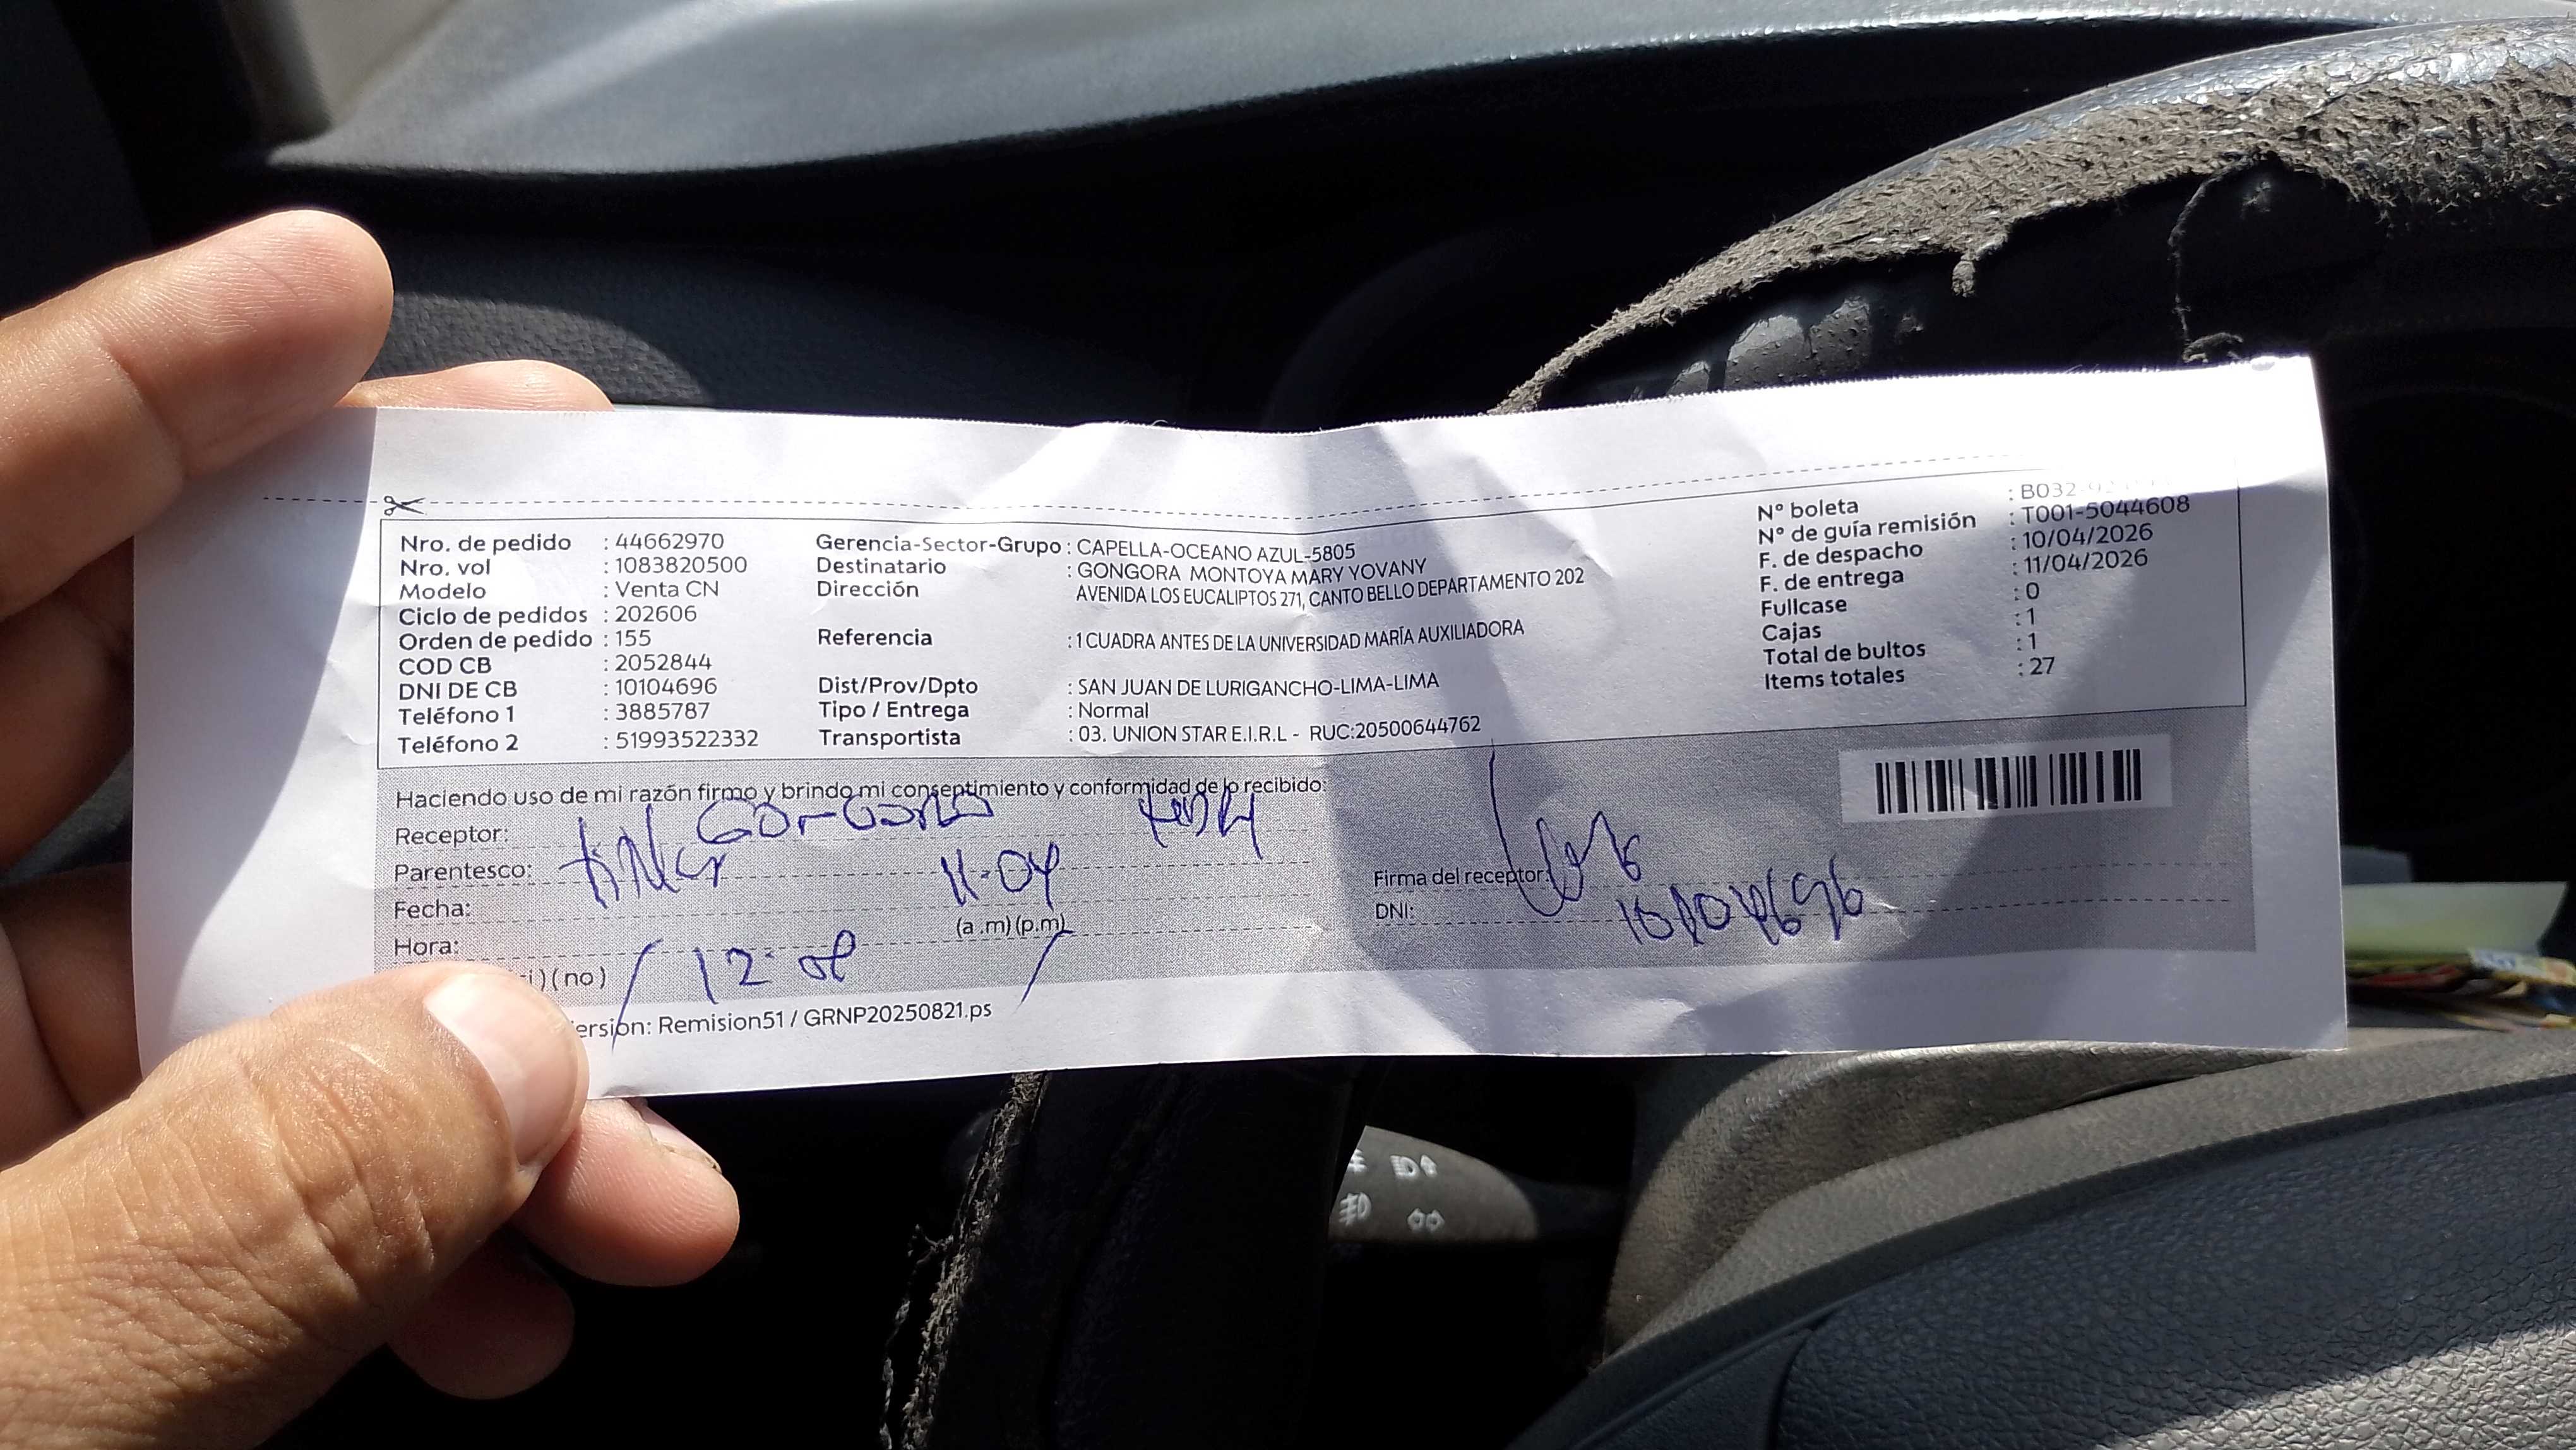 Nro. de pedido : 44662970
Nro. vol : 1083820500
Modelo : Venta CN
Ciclo de pedidos : 202606
Orden de pedido : 155
COD CB : 2052844
DNI DE CB : 10104696
Teléfono 1 : 3885787
Teléfono 2 : 51993522332
Gerencia-Sector-Grupo : CAPELLA-OCEANO AZUL-5805
Destinatario : GONGORA MONTOYA MARY YOVANY
Dirección AVENIDA LOS EUCALIPTOS 271, CANTO BELLO DEPARTAMENTO 202
Referencia : 1 CUADRA ANTES DE LA UNIVERSIDAD MARÍA AUXILIADORA
Dist/Prov/Dpto : SAN JUAN DE LURIGANCHO-LIMA-LIMA
Tipo / Entrega : Normal
Transportista : 03. UNION STAR E.I.R.L - RUC:20500644762
N° boleta : B032
N° de guía remisión : T001-5044608
F. de despacho : 10/04/2026
F. de entrega : 11/04/2026
Fullcase : 0
Cajas : 1
Total de bultos : 1
Items totales : 27
Haciendo uso de mi razón firmo y brindo mi consentimiento y conformidad de lo recibido:
Receptor:
Parentesco:
Fecha: 11-04
Hora: 12 (a.m) (p.m)
(no)
Firma del receptor:
DNI: 10104696
ersion: Remision51 / GRNP20250821.ps